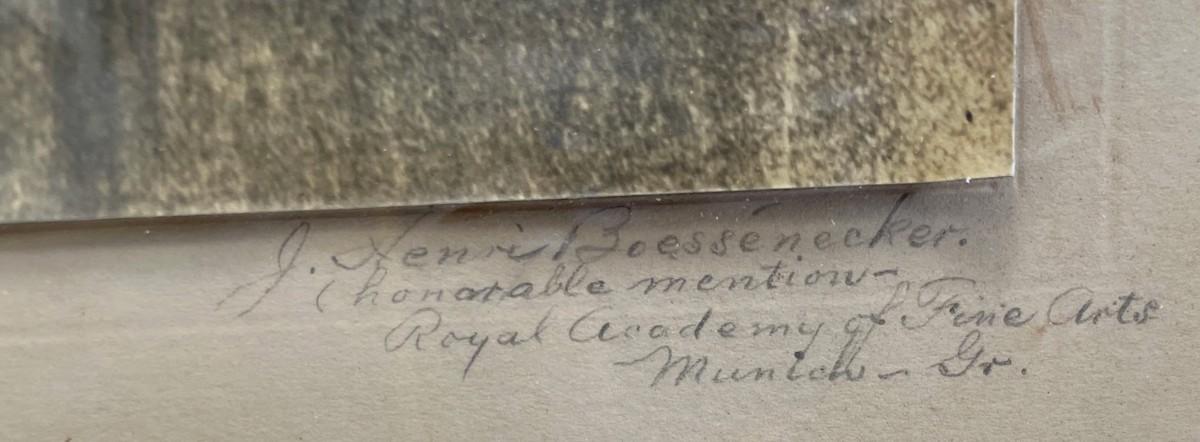 J. Henri Boessenecker.
(honorable mention -
Royal Academy of Fine Arts
Munich - Gr.